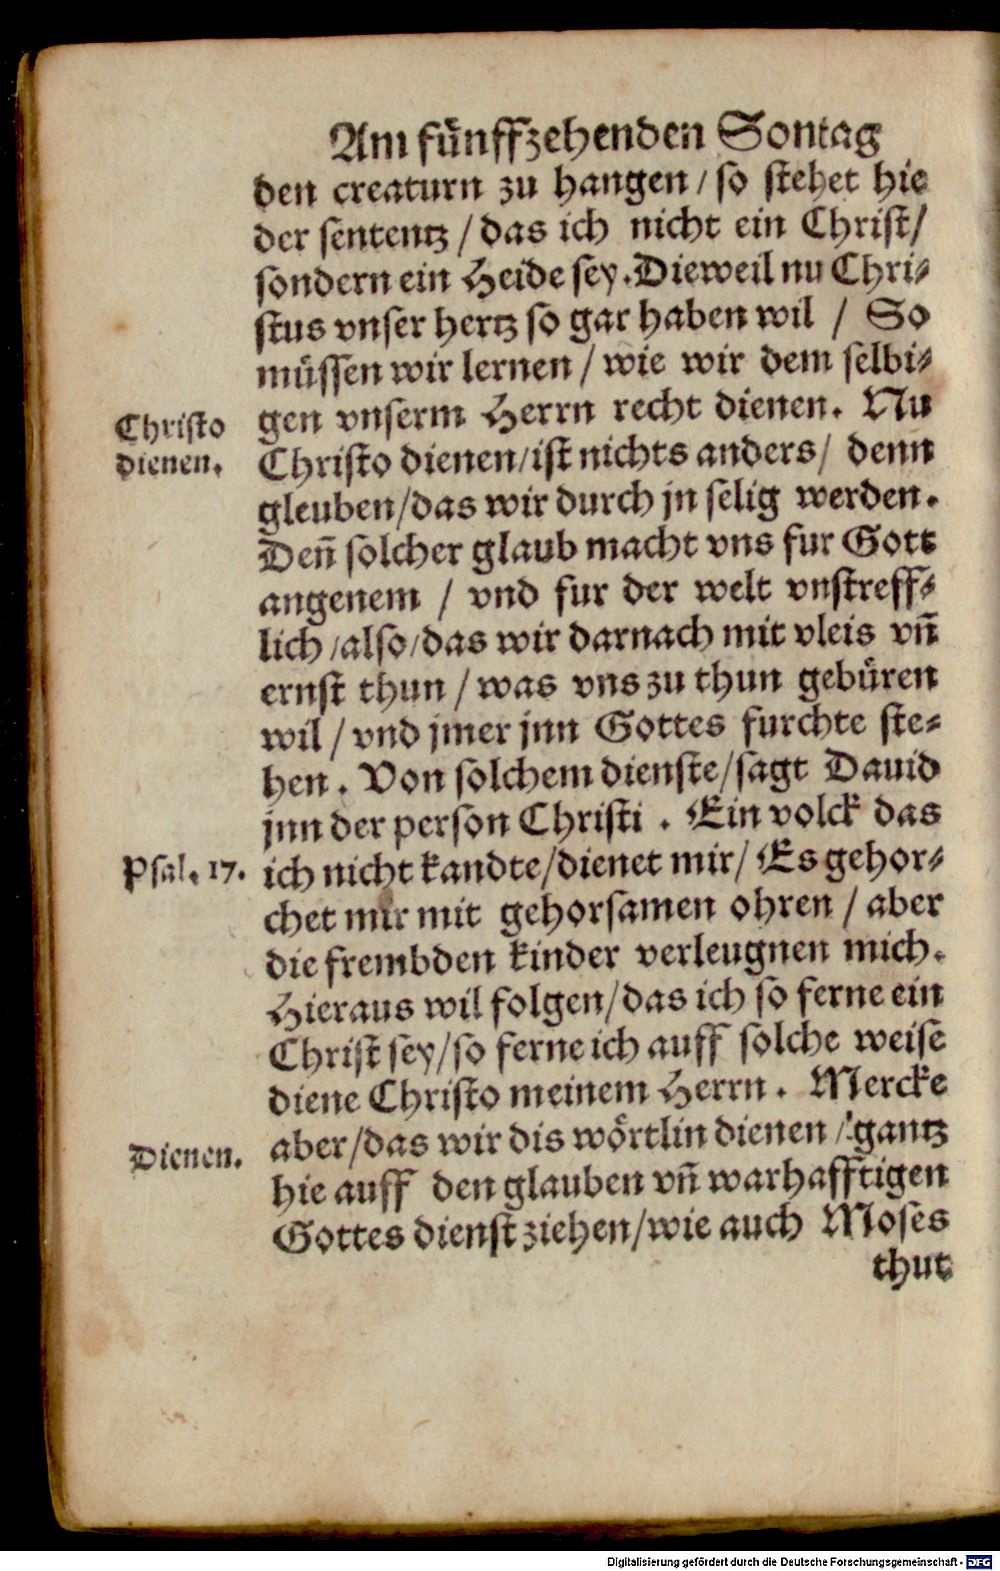 Am fünffzehenden Sontag
den creaturn zu hangen / so stehet hie
der sententz / das ich nicht ein Christ /
sondern ein Heide sey. Dieweil nu Chri⸗
stus vnser hertz so gar haben wil / So
müssen wir lernen / wie wir dem selbi⸗
gen vnserm Herrn recht dienen. Nu
Christo
dienen.
Christo dienen / ist nichts anders / denn
gleuben / das wir durch jn selig werden.
Deñ solcher glaub macht vns fur Gott
angenem / vnd fur der welt vnstreff⸗
lich / also / das wir darnach mit vleis vñ
ernst thun / was vns zu thun gebüren
wil / vnd jmer jnn Gottes furchte ste⸗
hen. Von solchem dienste / sagt Dauid
jnn der person Christi. Ein volck das
Psal. 17.
ich nicht kandte / dienet mir / Es gehor⸗
chet mir mit gehorsamen ohren / aber
die frembden kinder verleugnen mich.
Hieraus wil folgen / das ich so ferne ein
Christ sey / so ferne ich auff solche weise
diene Christo meinem Herrn. Mercke
Dienen.
aber / das wir dis wörtlin dienen / gantz
hie auff den glauben vñ warhafftigen
Gottes dienst ziehen / wie auch Moses
thut
Digitalisierung gefördert durch die Deutsche Forschungsgemeinschaft - DFG